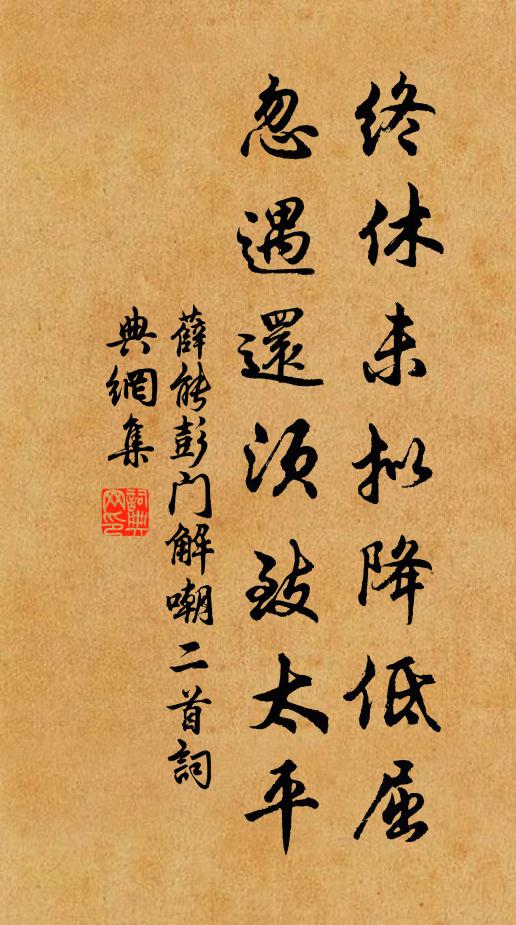 終休未拟降低屈
忽遇還須致太平
薛能彭门解嘲二首詞
典網集
詞典网印